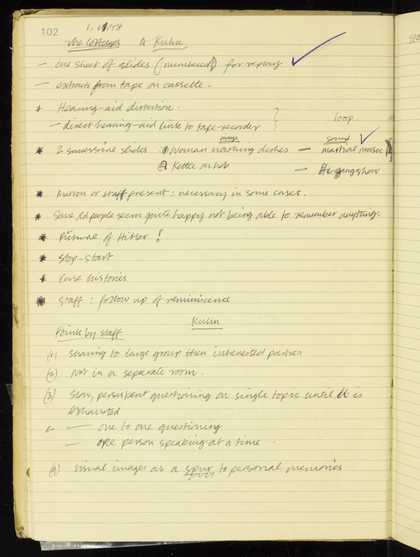 102
1. With
& Kuhn
— one sheet of slides (numbered) for replay ✓
— extracts from tape on cassette.
+ Hearing-aid distortion.
— direct hearing-aid link to tape-recorder loop
image sound ✓
* 2 surprise slides ① Woman washing dishes — martial music
② Kettle on hob —
* Nurses or staff present: necessary in some cases.
* Some old people seem quite happy not being able to remember anything.
* Picture of Hitler!
* Stop-start
* Case histories
* Staff: follow up of reminiscence
Kuhn
Points by staff
(1) showing to large group then interested parties
(2) not in a separate room.
(3) Slow, persistent questioning on single topic until it is
exhausted
— one to one questioning
— one person speaking at a time
(4) Visual images as a spur to personal memories